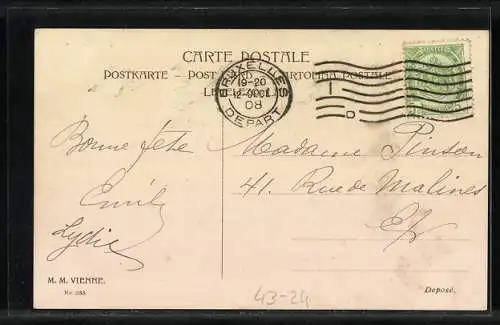 CARTE POSTALE
POSTKARTE – POST CARD – CARTOLINA POSTALE
BRUXELLES
19-20
12 OCT.
08
DEPART
1
D
Bonne fête
Emily
Lydie
Madame Pinson
41. Rue de Malines
E/V
M. M. VIENNE.
Nr.
Déposé.
43-24